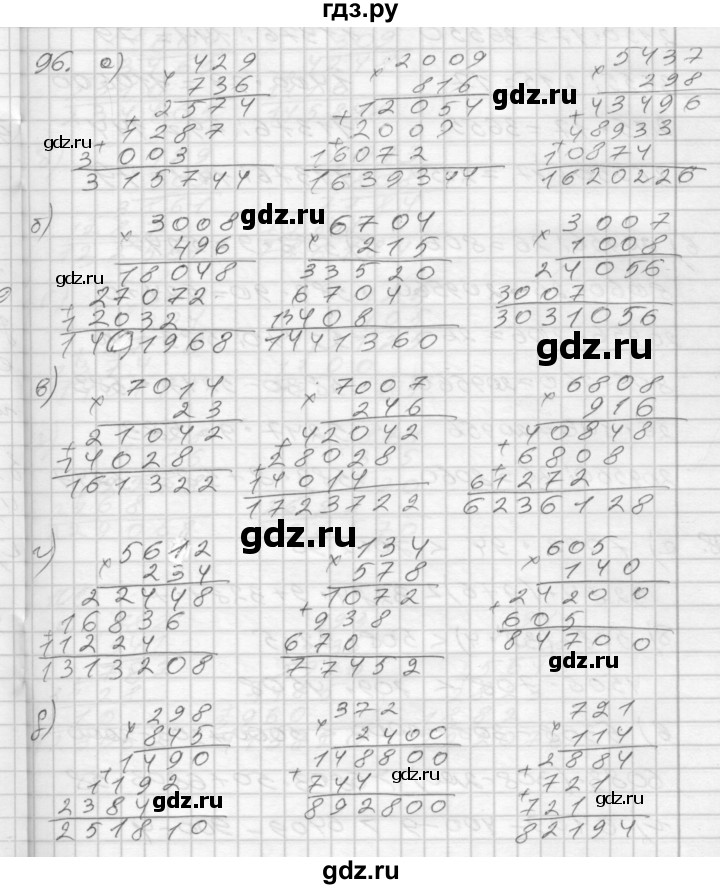 гдз.ру
96. а) 429 2009 5437
× 736 × 816 × 298
2574 + 12054 + 43496
+ 1287 + 2009 + 48933
3003 16072 10874
315744 1639344 1620226
б) 3008 6704 3007
× 496 × 215 × 1008
18048 33520 24056
+ 27072 6704 3007
12032 13408 3031056
1491968 1441360
в) 7014 7007 6808
× 23 × 246 × 916
+ 21042 + 42042 + 40848
14028 + 28028 + 6808
161322 14014 61272
1723722 6236128
г) 5612 134 605
× 234 × 578 × 140
22448 1072 + 24200
+ 16836 + 938 605
11224 670 84700
1313208 77452
д) 298 372 721
× 845 × 2400 × 114
+ 1490 + 148800 + 2884
1192 744 + 721
2384 892800 721
251810 82194
gdz.ru
gdz.ru
gdz.ru
gdz.ru
gdz.ru
gdz.ru
gdz.ru
gdz.ru
gdz.ru
gdz.ru
gdz.ru
gdz.ru
gdz.ru